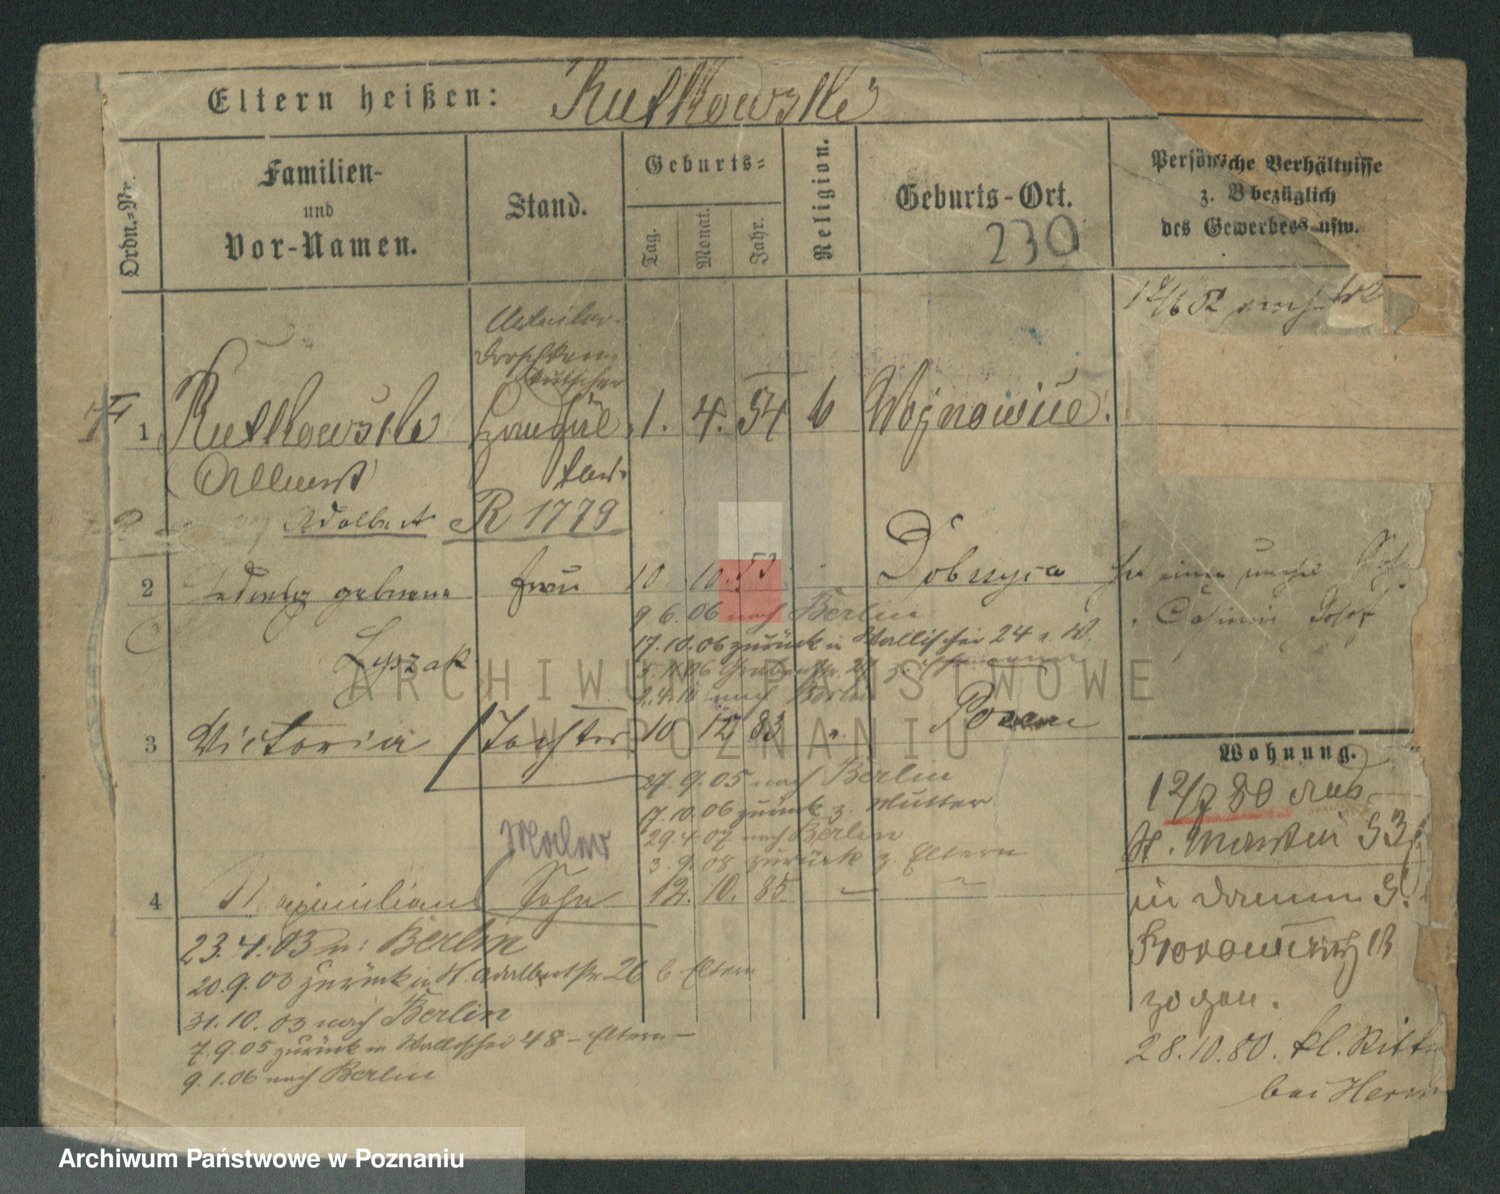 Eltern heißen: Rutkowski
Ordn.-Nr.
Familien-
und
Vor-Namen.
Stand.
Geburts-
Tag.
Monat.
Jahr.
Religion.
Geburts-Ort.
230
Persönliche Verhältnisse
z. B. bezüglich
des Gewerbes usw.
Droschken-
kutscher
1 Rutkowski 1. 4. 54 Wojnowice.
Albert
Adalbert R 1779
2 Hedwig geborene Frau 10 10. 53 Dobrzyca
Lyszak
9 6. 06 nach Berlin
17. 10. 06 zurück in Wallischei 24 a. W.
nach Berlin
3 Victoria Tochter 10 12 83 Posen
27. 9. 05 nach Berlin
17. 10. 06 zurück z. Mutter
29. 4. 07 nach Berlin
3. 9. 08 zurück z. Eltern
Maler
4 Maximilian Sohn 12. 10. 85.
23. 4. 03 n: Berlin
20. 9. 03 zurück in St. Adalbertstr. 26 b. Eltern
31. 10. 03 nach Berlin
7. 9. 05 zurück in Wallischei 48 - Eltern -
9. 1. 06 nach Berlin
Wohnung.
12/7 80
St. Martin 53
zogen.
28. 10. 80. kl. Ritt
bei Herrn
ARCHIWUM PAŃSTWOWE
W POZNANIU
Archiwum Państwowe w Poznaniu